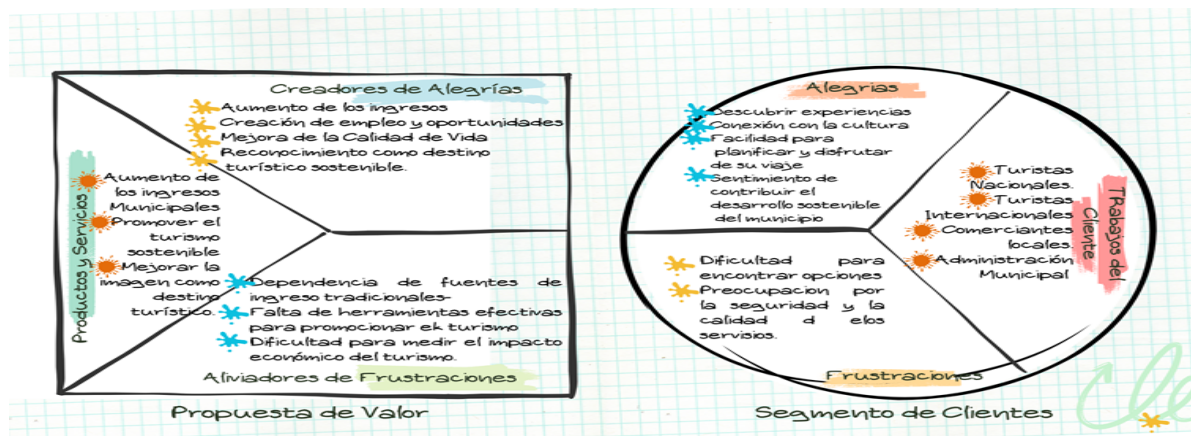 Creadores de Alegrías
Aumento de los ingresos
Creación de empleo y oportunidades
Mejora de la Calidad de Vida
Reconocimiento como destino
turístico sostenible.
Productos y Servicios
Aumento de
los ingresos
Municipales
Promover el
turismo
sostenible
Mejorar la
imagen como
destino
turístico.
Dependencia de fuentes de
ingreso tradicionales-
Falta de herramientas efectivas
para promocionar ek turismo
Dificultad para medir el impacto
económico del turismo.
Aliviadores de Frustraciones
Propuesta de Valor
Alegrias
Descubrir experiencias
Conexión con la cultura
Facilidad para
planificar y disfrutar
de su viaje
Sentimiento de
contribuir el
desarrollo sostenible
del municipio
Turistas
Nacionales.
Turistas
Internacionales
Comerciantes
locales.
Administración
Municipal
TRabajos del
Cliente
Dificultad para
encontrar opciones
Preocupacion por
la seguridad y la
calidad d elos
servisios.
Frustraciones
Segmento de Clientes
Cle